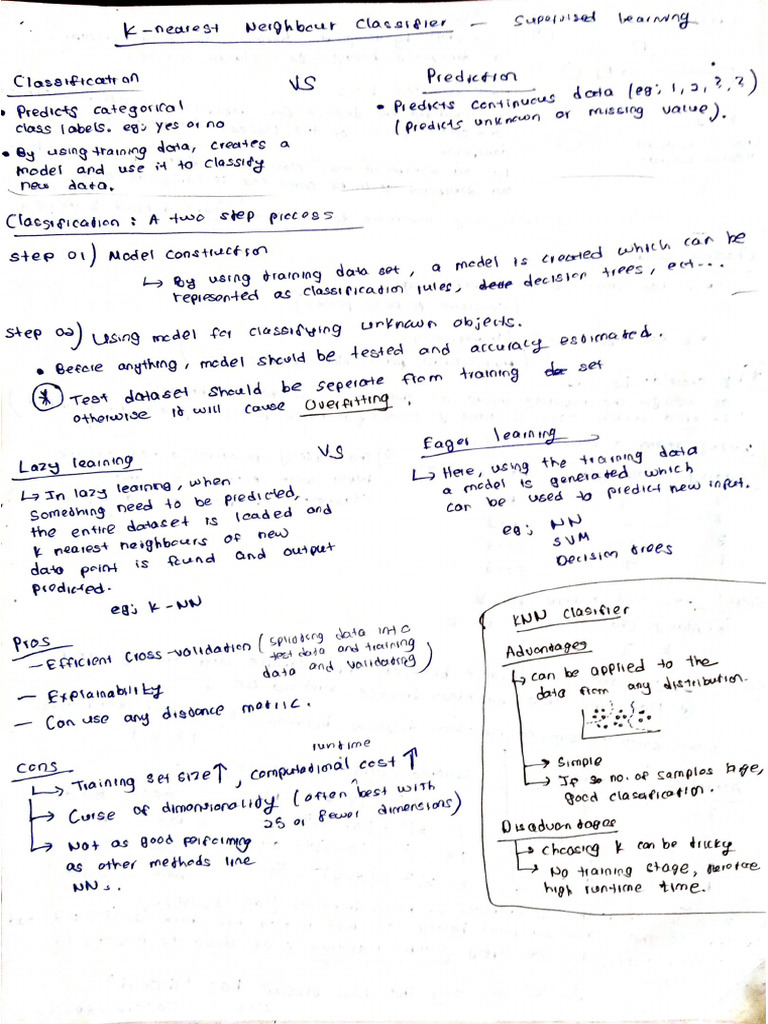 K-nearest Neighbour Classifier - Supervised learning
Classification VS Prediction
• Predicts categorical
class labels. eg: yes or no
• By using training data, creates a
model and use it to classify
new data.
• Predicts continuous data (eg: 1, 2, 3, 3)
(Predicts unknown or missing value).
Classification : A two step process
Step 01) Model Construction
↳ By using training data set, a model is created which can be
represented as classification rules, decision trees, ect...
Step 02) Using model for classifying unknown objects.
• Before anything, model should be tested and accuracy estimated.
* Test dataset should be seperate from training set
otherwise it will cause Overfitting.
Lazy learning VS Eager learning
↳ In lazy learning, when
something need to be predicted,
the entire dataset is loaded and
k nearest neighbours of new
data point is found and output
predicted.
eg: K-NN
↳ Here, using the training data
a model is generated which
can be used to predict new input.
eg: NN
SVM
Decision trees
Pros
- Efficient Cross-validation (spliting data into
test data and training
data and validating)
- Explainability
- Can use any distance metric.
Cons
↳ Training set size ↑, runtime computational cost ↑
↳ Curse of dimensionality (often best with
25 or fewer dimensions)
↳ Not as good performing
as other methods line
NNs.
KNN Clasifier
Advantages
↳ can be applied to the
data from any distribution.
→ Simple
↳ If so no. of samples large,
good classification.
Disadvantages
→ Choosing k can be tricky
↳ No training stage, therefore
high runtime time.